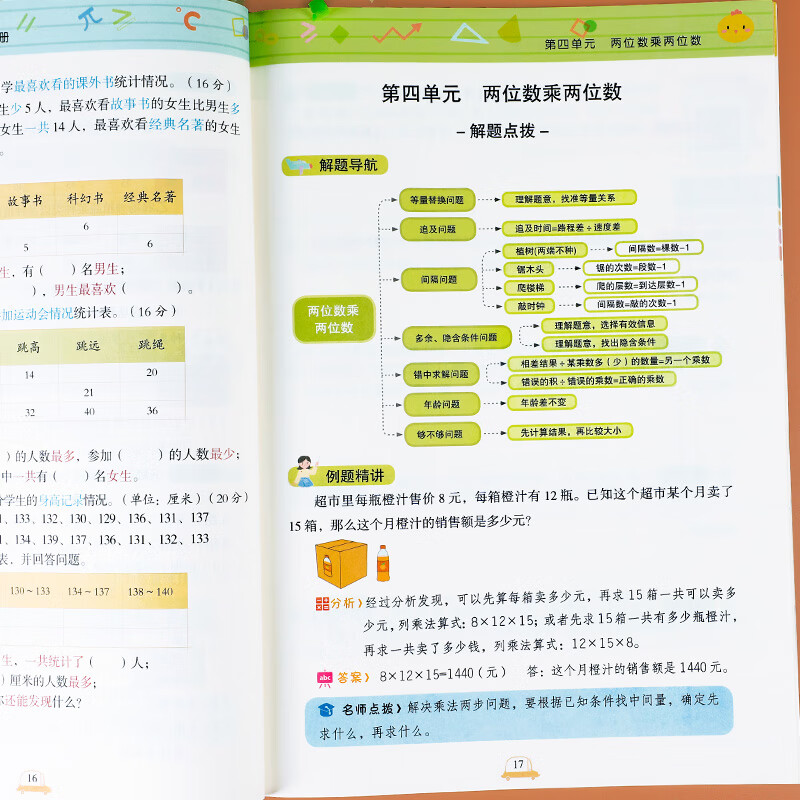 册
学最喜欢看的课外书统计情况。（16分）
生少5人，最喜欢看故事书的女生比男生多
女生一共14人，最喜欢看经典名著的女生
。
故事书 科幻书 经典名著
6
5 6
生，有（ ）名男生；
），男生最喜欢（ ）。
参加运动会情况统计表。（16分）
跳高 跳远 跳绳
14 20
21
32 40 36
）的人数最多，参加（ ）的人数最少；
中一共有（ ）名女生。
分学生的身高记录情况。（单位：厘米）（20分）
1、133、132、130、129、136、131、137
1、134、139、137、136、131、132、133
表，并回答问题。
130～133 134～137 138～140
生，一共统计了（ ）人；
）厘米的人数最多；
还能发现什么？
16
第四单元 两位数乘两位数
第四单元 两位数乘两位数
－解题点拨－
解题导航
两位数乘
两位数
等量替换问题 理解题意，找准等量关系
追及问题 追及时间=路程差÷速度差
间隔问题
植树(两端不种) 间隔数=棵数-1
锯木头 锯的次数=段数-1
爬楼梯 爬的层数=到达层数-1
敲时钟 间隔数=敲的次数-1
多余、隐含条件问题
理解题意，选择有效信息
理解题意，找出隐含条件
错中求解问题
相差结果÷某乘数多（少）的数量=另一个乘数
错误的积÷错误的乘数=正确的乘数
年龄问题 年龄差不变
够不够问题 先计算结果，再比较大小
例题精讲
超市里每瓶橙汁售价8元，每箱橙汁有12瓶。已知这个超市某个月卖了
15箱，那么这个月橙汁的销售额是多少元？
分析〉经过分析发现，可以先算每箱卖多少元，再求15箱一共可以卖多
少元，列乘法算式：8×12×15；或者先求15箱一共有多少瓶橙汁，
再求一共卖了多少钱，列乘法算式：12×15×8。
abc 答案〉 8×12×15=1440（元） 答：这个月橙汁的销售额是1440元。
名师点拨〉解决乘法两步问题，要根据已知条件找中间量，确定先
求什么，再求什么。
17